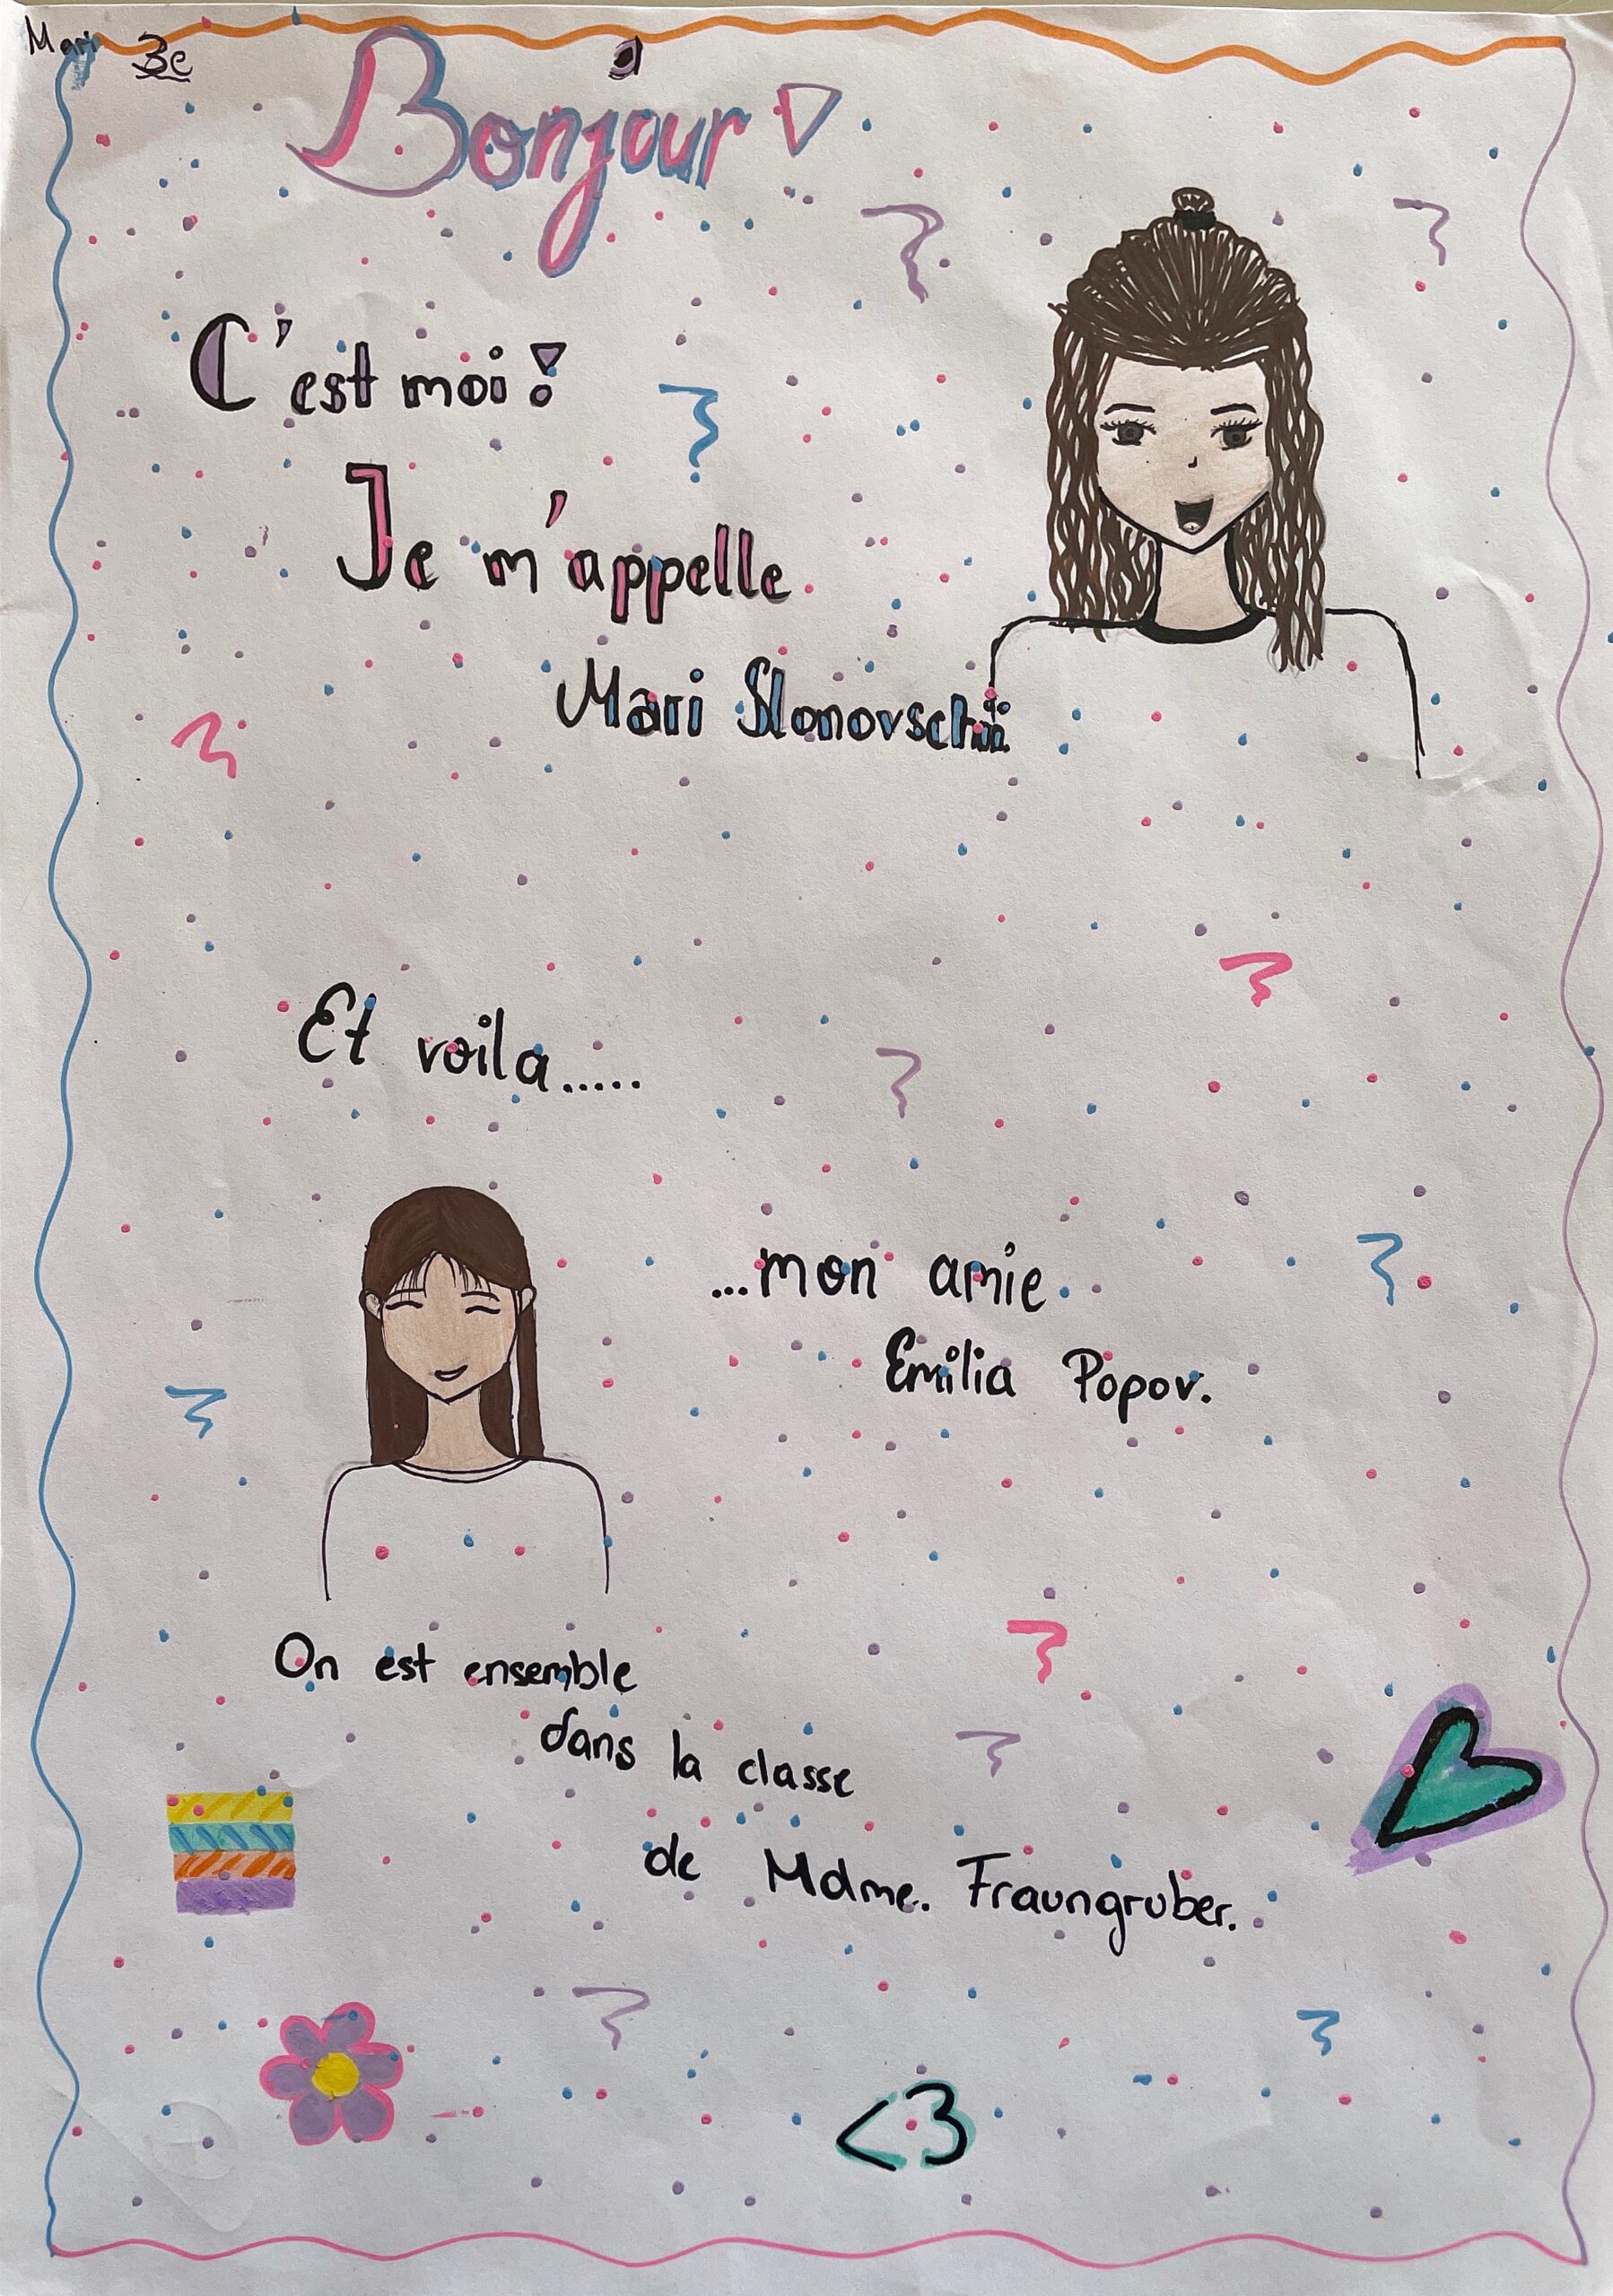 Mari 3e
Bonjour
C'est moi!
Je m'appelle
Mari Slonovschii
Et voila.....
...mon amie
Emilia Popov.
On est ensemble
dans la classe
de Mdme. Fraungruber.
<3